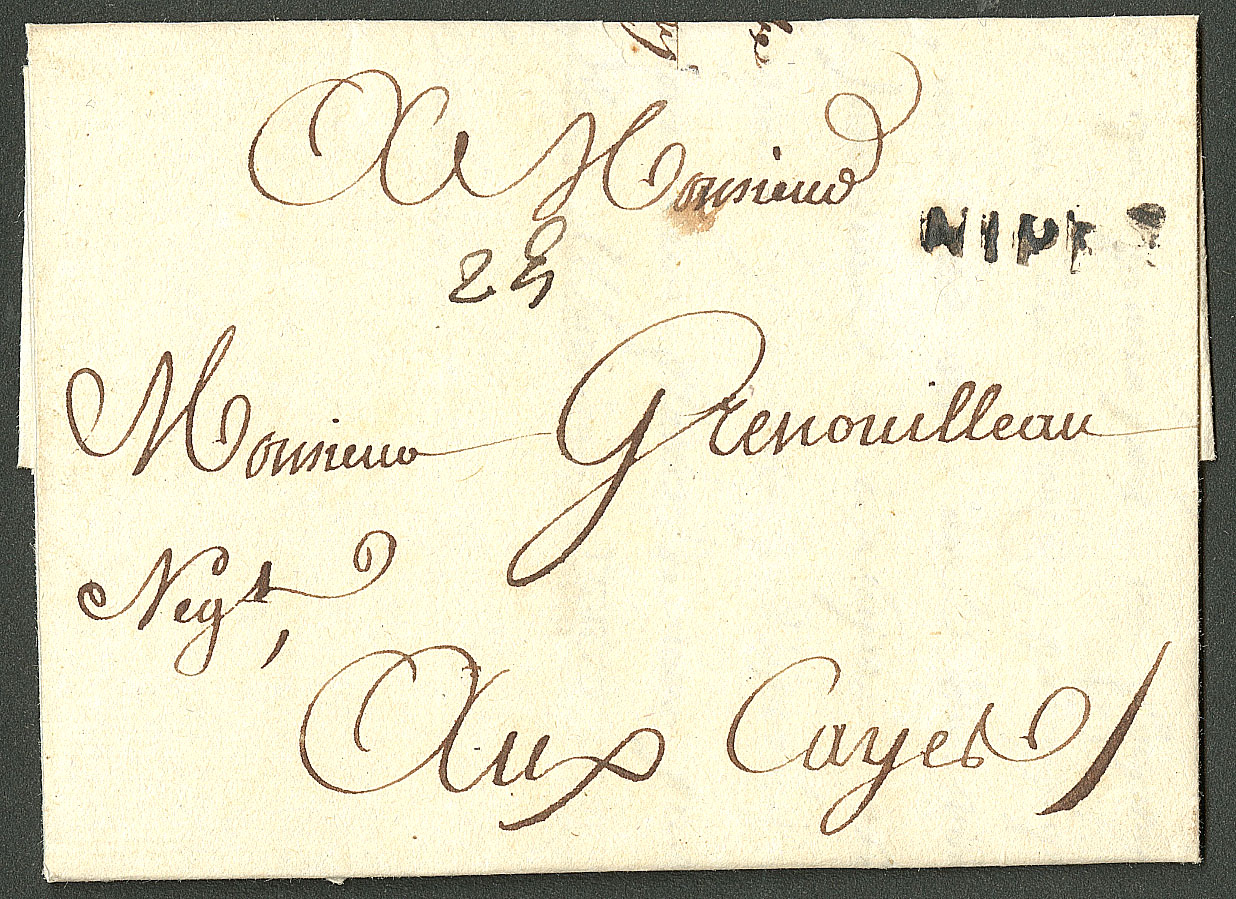 A Monsieur
NIPP
Monsieur Grenouilleau
Negt,
Aux Cayes